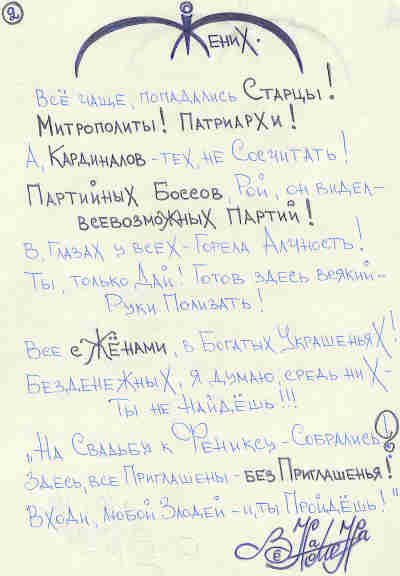 2
Жених.
Всё чаще, попадались Старцы!
Митрополиты! Патриархи!
А, Кардиналов - тех, не Сосчитать!
Партийных Боссов, Рой, он видел -
всевозможных Партий!
В, Глазах у всех - Горела Алчность!
Ты, только Дай! Готов здесь всякий -
Руки Полизать!
Все с Жёнами, в Богатых Украшеньях!
Безденежных, я думаю, средь них -
Ты не найдёшь!!!
„На Свадьбу к Фениксу - Собрались!
Здесь, все Приглашены - без Приглашенья!
Входи, любой Злодей - и, ты Пройдёшь!"